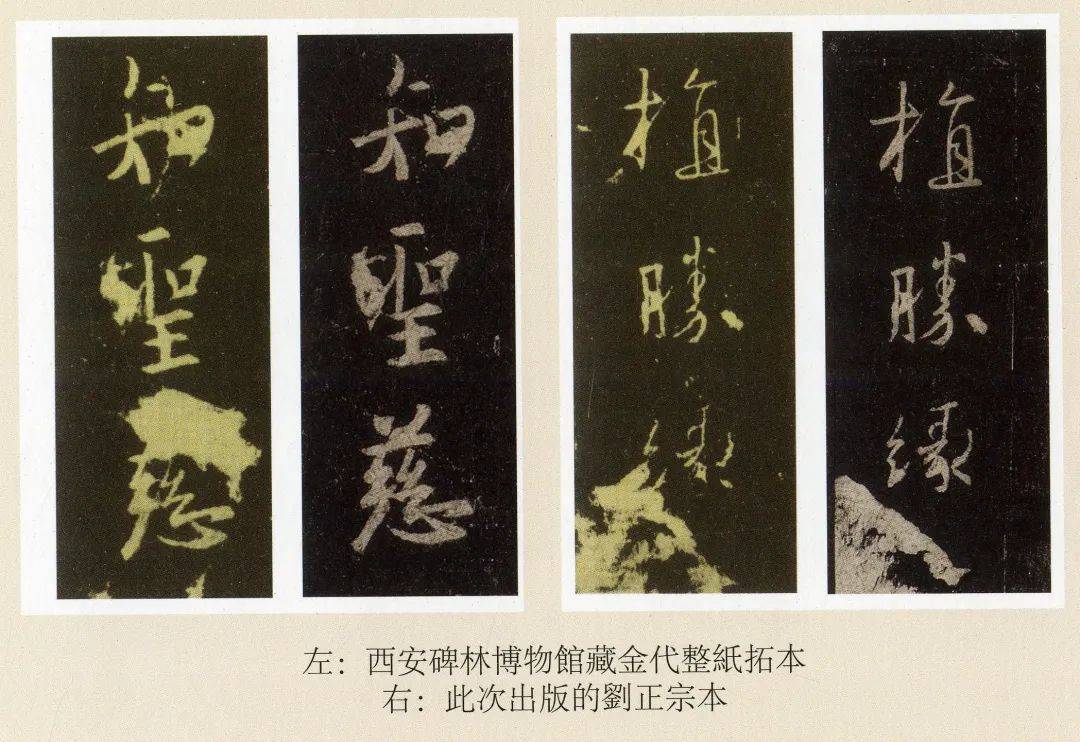 知聖慈
知聖慈
植勝緣
植勝緣
左：西安碑林博物館藏金代整紙拓本
右：此次出版的劉正宗本